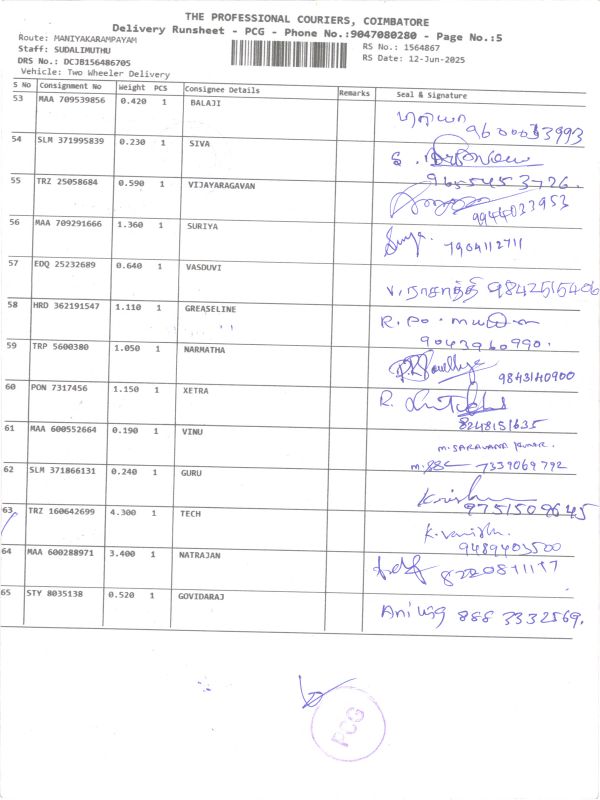 THE PROFESSIONAL COURIERS, COIMBATORE
Delivery Runsheet - PCG - Phone No.:9047080280 - Page No.:5
Route: MANIYAKARAMPAYAM RS No.: 1564867
Staff: SUDALIMUTHU
DRS No.: DCJB156486705 RS Date: 12-Jun-2025
Vehicle: Two Wheeler Delivery
S No Consignment No Weight PCS Consignee Details Remarks Seal & Signature
53 MAA 709539856 0.420 1 BALAJI
54 SLM 371995839 0.230 1 SIVA
9655453726.
55 TRZ 25058684 0.590 1 VIJAYARAGAVAN
9944033953
56 MAA 709291666 1.360 1 SURIYA
Suriya. 7904112711
57 EDQ 25232689 0.640 1 VASDUVI
v. ராசாத்தி 9842515406
58 HRD 362191547 1.110 1 GREASELINE
9043960990.
59 TRP 5600380 1.050 1 NARMATHA
9843140900
60 PON 7317456 1.150 1 XETRA
R.
8248151635
61 MAA 600552664 0.190 1 VINU
M. SARAVANA KUMAR.
7339069792
62 SLM 371866131 0.240 1 GURU
Krishna
9751509645
63 TRZ 160642699 4.300 1 TECH
9489403500
64 MAA 600288971 3.400 1 NATRAJAN
65 STY 8035138 0.520 1 GOVIDARAJ
888 3332569.
PCG